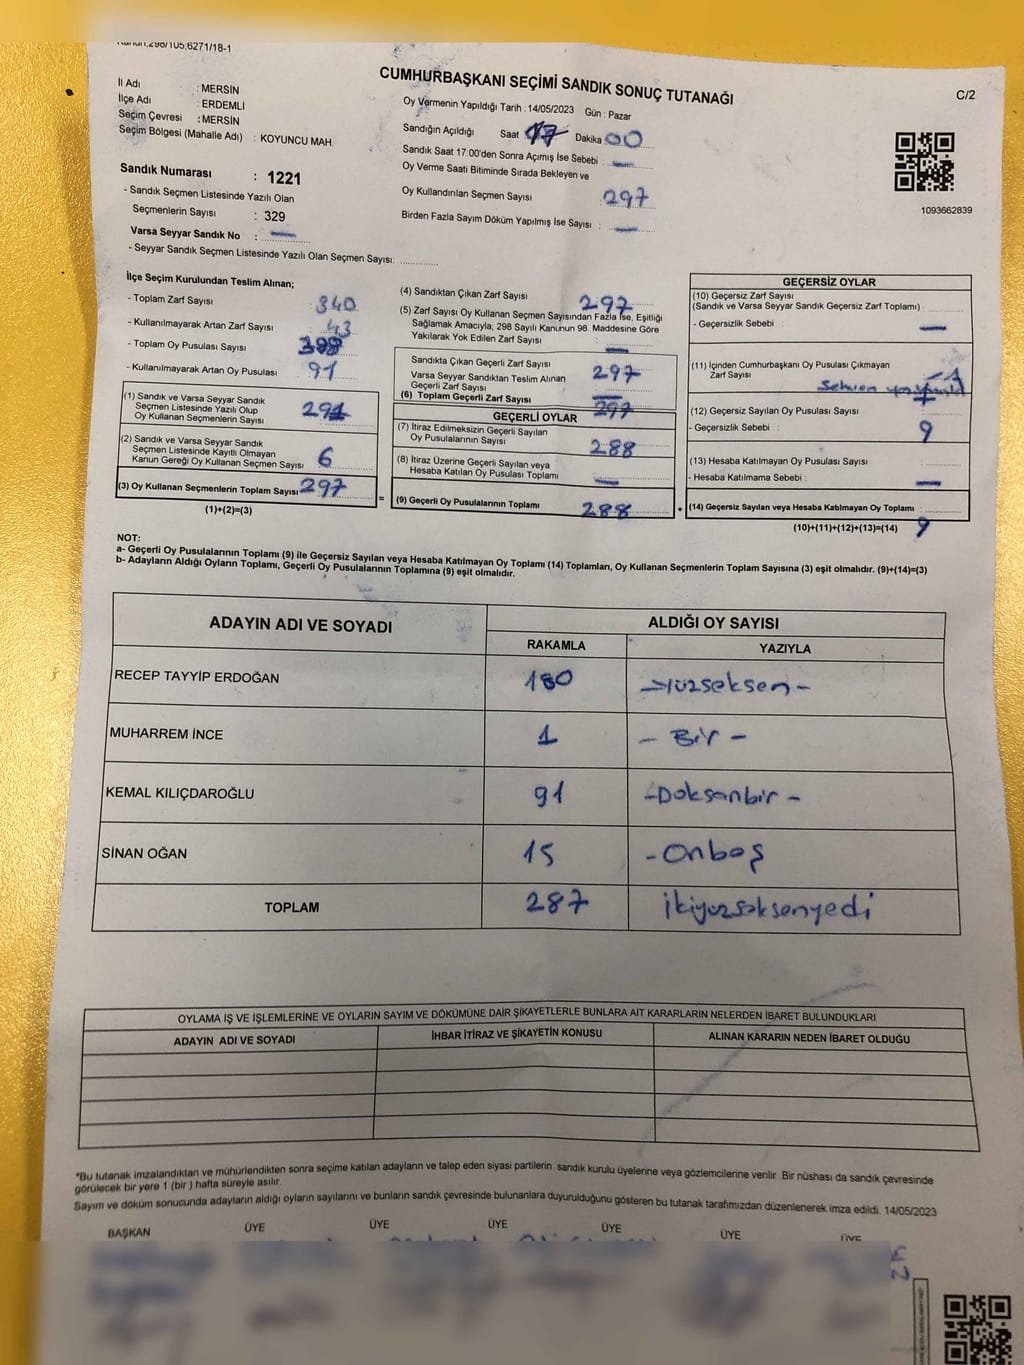 Kanun,298/105,6271/18-1
CUMHURBAŞKANI SEÇİMİ SANDIK SONUÇ TUTANAĞI
C/2
İl Adı : MERSİN
İlçe Adı : ERDEMLİ
Seçim Çevresi : MERSİN
Seçim Bölgesi (Mahalle Adı) : KOYUNCU MAH.
Sandık Numarası : 1221
- Sandık Seçmen Listesinde Yazılı Olan
Seçmenlerin Sayısı : 329
Varsa Seyyar Sandık No : —
- Seyyar Sandık Seçmen Listesinde Yazılı Olan Seçmen Sayısı:
Oy Vermenin Yapıldığı Tarih : 14/05/2023 Gün : Pazar
Sandığın Açıldığı Saat 17 Dakika 00
Sandık Saat 17:00'den Sonra Açımış İse Sebebi : —
Oy Verme Saati Bitiminde Sırada Bekleyen ve
Oy Kullandırılan Seçmen Sayısı : 297
Birden Fazla Sayım Döküm Yapılmış İse Sayısı : —
1093662839
İlçe Seçim Kurulundan Teslim Alınan;
- Toplam Zarf Sayısı : 340
- Kullanılmayarak Artan Zarf Sayısı : 43
- Toplam Oy Pusulası Sayısı
- Kullanılmayarak Artan Oy Pusulası : 91
(1) Sandık ve Varsa Seyyar Sandık
Seçmen Listesinde Yazılı Olup
Oy Kullanan Seçmenlerin Sayısı : 291
(2) Sandık ve Varsa Seyyar Sandık
Seçmen Listesinde Kayıtlı Olmayan
Kanun Gereği Oy Kullanan Seçmen Sayısı : 6
(3) Oy Kullanan Seçmenlerin Toplam Sayısı : 297
(1)+(2)=(3)
(4) Sandıktan Çıkan Zarf Sayısı : 297
(5) Zarf Sayısı Oy Kullanan Seçmen Sayısından Fazla İse, Eşitliği
Sağlamak Amacıyla; 298 Sayılı Kanunun 98. Maddesine Göre
Yakılarak Yok Edilen Zarf Sayısı : —
Sandıkta Çıkan Geçerli Zarf Sayısı : 297
Varsa Seyyar Sandıktan Teslim Alınan
Geçerli Zarf Sayısı : —
(6) Toplam Geçerli Zarf Sayısı : 297
GEÇERLİ OYLAR
(7) İtiraz Edilmeksizin Geçerli Sayılan
Oy Pusulalarının Sayısı : 288
(8) İtiraz Üzerine Geçerli Sayılan veya
Hesaba Katılan Oy Pusulası Toplamı : —
= (9) Geçerli Oy Pusulalarının Toplamı : 288
GEÇERSİZ OYLAR
(10) Geçersiz Zarf Sayısı
(Sandık ve Varsa Seyyar Sandık Geçersiz Zarf Toplamı) :
- Geçersizlik Sebebi : —
(11) İçinden Cumhurbaşkanı Oy Pusulası Çıkmayan
Zarf Sayısı
(12) Geçersiz Sayılan Oy Pusulası Sayısı :
- Geçersizlik Sebebi : 9
(13) Hesaba Katılmayan Oy Pusulası Sayısı :
- Hesaba Katılmama Sebebi : —
+ (14) Geçersiz Sayılan veya Hesaba Katılmayan Oy Toplamı : 9
(10)+(11)+(12)+(13)=(14)
NOT:
a- Geçerli Oy Pusulalarının Toplamı (9) ile Geçersiz Sayılan veya Hesaba Katılmayan Oy Toplamı (14) Toplamları, Oy Kullanan Seçmenlerin Toplam Sayısına (3) eşit olmalıdır. (9)+(14)=(3)
b- Adayların Aldığı Oyların Toplamı, Geçerli Oy Pusulalarının Toplamına (9) eşit olmalıdır.
ADAYIN ADI VE SOYADI ALDIĞI OY SAYISI
RAKAMLA YAZIYLA
RECEP TAYYİP ERDOĞAN 180 -yüzseksen-
MUHARREM İNCE 1 - Bir -
KEMAL KILIÇDAROĞLU 91 -Doksanbir-
SİNAN OĞAN 15 -Onbeş
TOPLAM 287 ikiyüzseksenyedi
OYLAMA İŞ VE İŞLEMLERİNE VE OYLARIN SAYIM VE DÖKÜMÜNE DAİR ŞİKAYETLERLE BUNLARA AİT KARARLARIN NELERDEN İBARET BULUNDUKLARI
ADAYIN ADI VE SOYADI İHBAR İTİRAZ VE ŞİKAYETİN KONUSU ALINAN KARARIN NEDEN İBARET OLDUĞU
*Bu tutanak imzalandıktan ve mühürlendikten sonra seçime katılan adayların ve talep eden siyasi partilerin sandık kurulu üyelerine veya gözlemcilerine verilir. Bir nüshası da sandık çevresinde
görülecek bir yere 1 (bir ) hafta süreyle asılır.
Sayım ve döküm sonucunda adayların aldığı oyların sayılarını ve bunların sandık çevresinde bulunanlara duyurulduğunu gösteren bu tutanak tarafımızdan düzenlenerek imza edildi. 14/05/2023
BAŞKAN ÜYE ÜYE ÜYE ÜYE ÜYE ÜYE